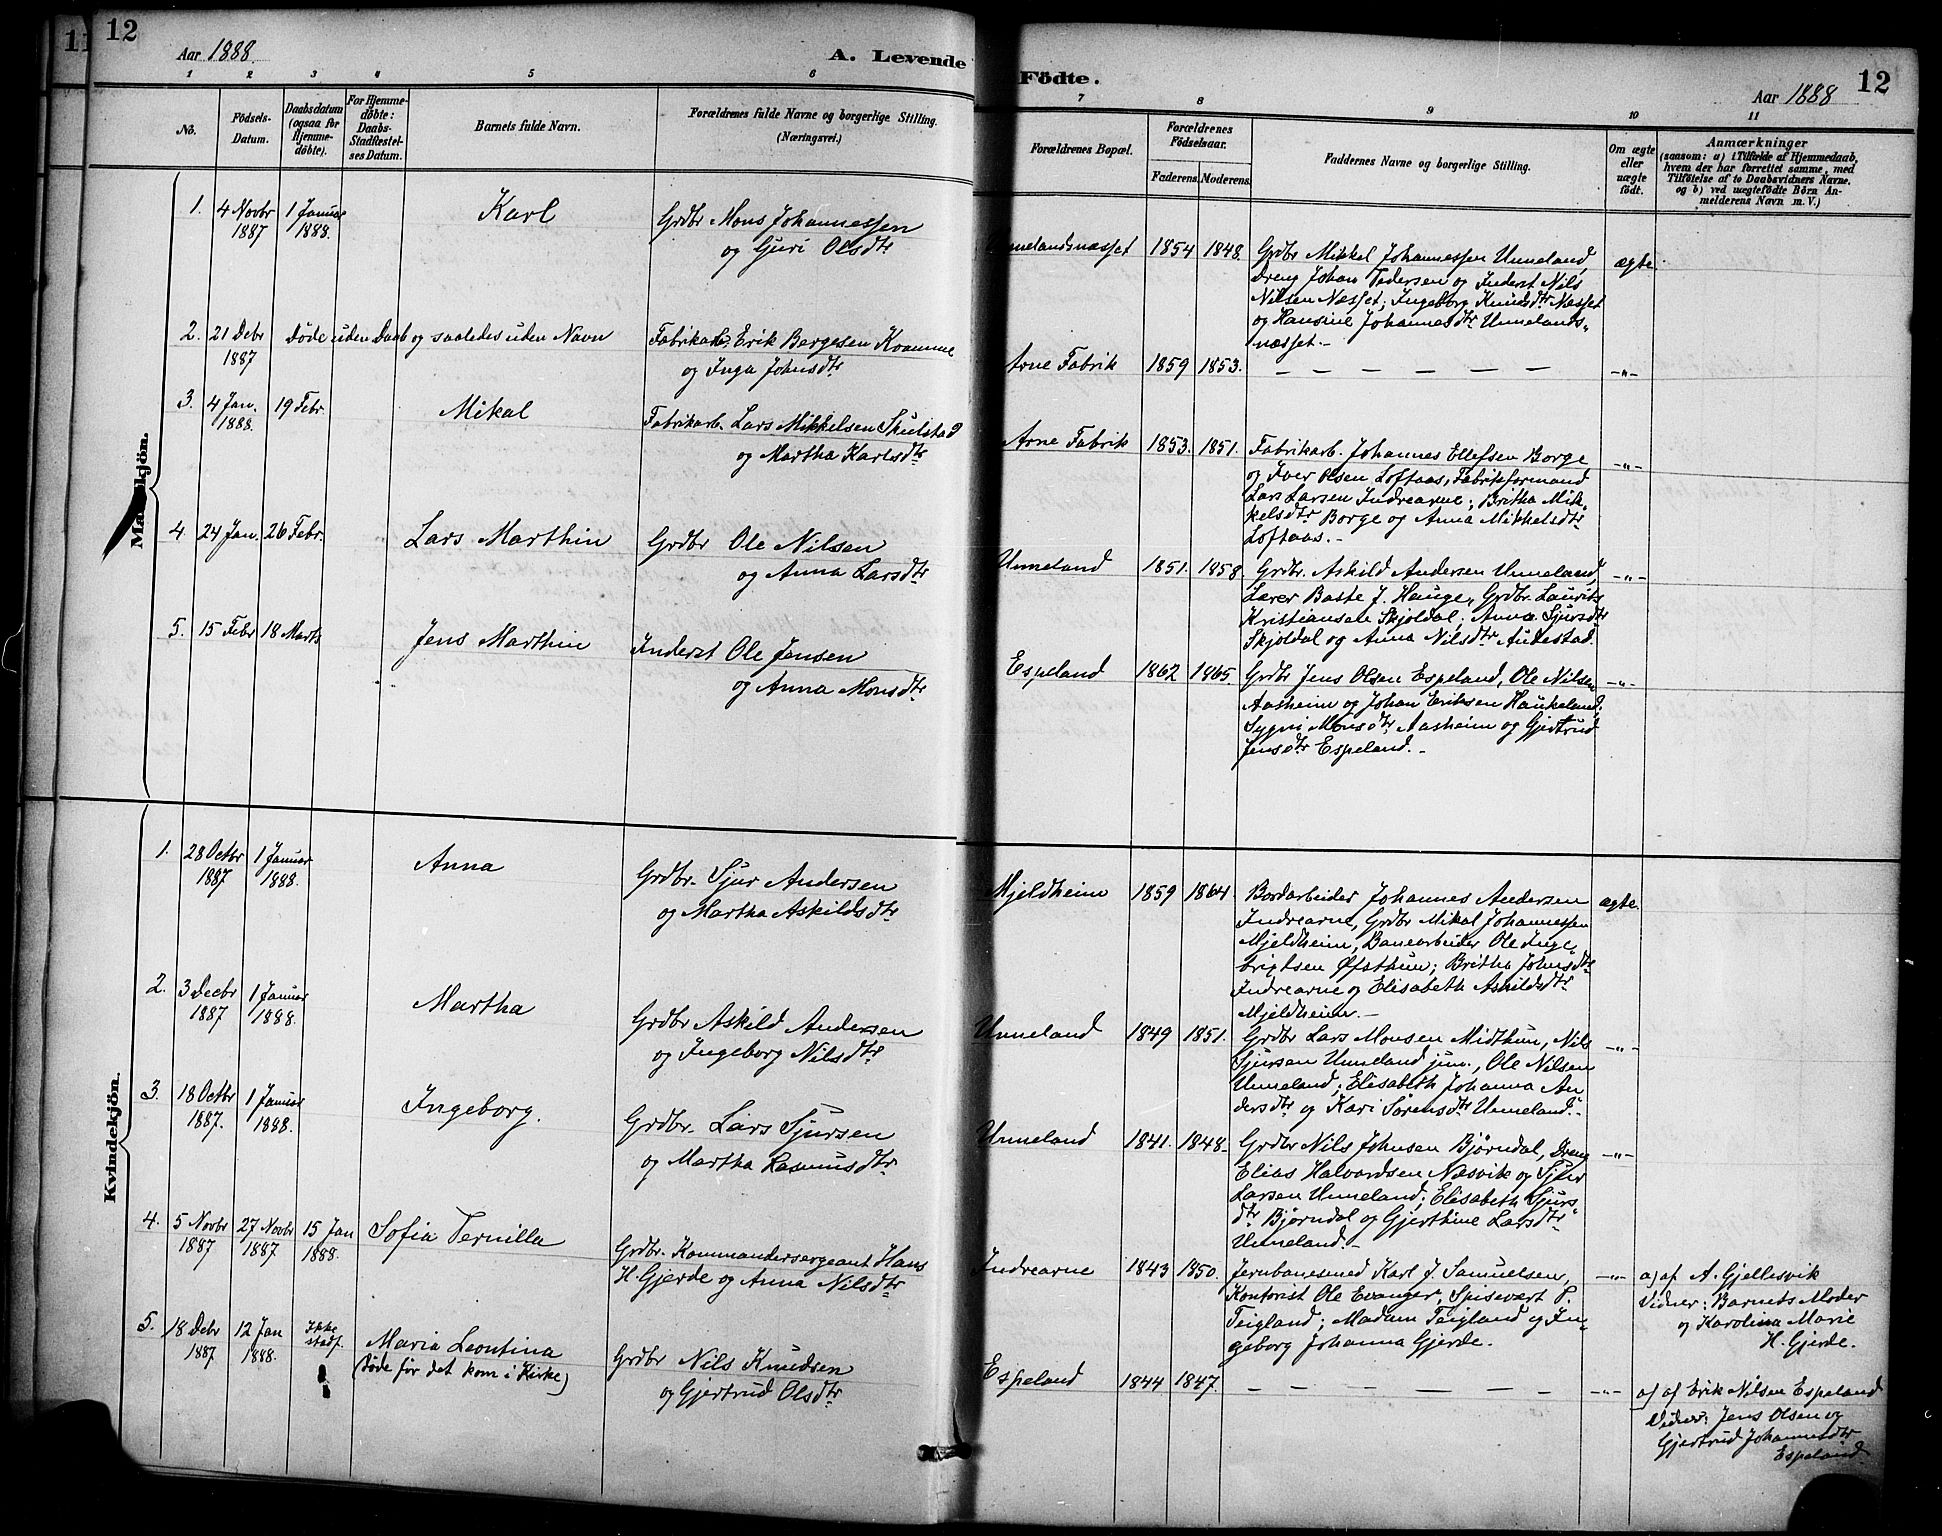 12
11
Aar 1888.
A. Levende Födte.
Aar 1888
12
1 2 3 4 5 6 7 8 9 10 11
No.
Födsels-
Datum.
Daabsdatum
(ogsaa for
Hjemme-
döbte).
For Hjemme-
døbte:
Daabs-
Stadfæstel-
ses Datum.
Barnets fulde Navn.
Forældrenes fulde Navne og borgerlige Stilling.
(Næringsvei.)
Forældrenes Bopæl.
Forældrenes
Födselsaar.
Faderens. Moderens.
Faddernes Navne og borgerlige Stilling.
Om ægte
eller
uægte
födt.
Anmærkninger
(saasom: a) i Tilfælde af Hjemmedaab,
hvem der har forrettet samme, med
Tilföielse af to Daabsvidners Navne.
og b) ved uægtefödte Börn An-
melderens Navn m. V.)
Mandkjön.
1. 4 Novbr 1 Januar Karl Grdbr Mons Johannessen
1887 1888. og Guri Olsdtr
Unnelandsnæsset 1854 1848. Grdbr Mikkel Johannessen Unneland, ægte.
Dreng Johan Pedersen og Inderst Nils
Nilsen Næsset; Ingeborg Knudsdtr Næsset
og Hansine Johannesdtr Unnelands-
næsset.-
2. 21 Debr Døde uden Daab og saaledes uden Navn Fabrikarb. Erik Bergesen Kvamme
1887 og Inga Johnsdtr
Arne Fabrik 1859 1853. — — — — — — -"-
3. 4 Jan. 19 Febr Mikal Fabrikarb. Lars Mikkelsen Skulstad
1888. og Martha Karlsdtr
Arne Fabrik 1853. 1851. Fabrikarb. Johannes Ellefsen Borge -"-
og Iver Olsen Loftaas, Fabrikformand
Lars Larsen Indrearne; Britha Mik-
kelsdtr Borge og Anna Mikkelsdtr
Loftaas.-
4. 24 Jan. 26 Febr. Lars Marthin Grdbr Ole Nilsen
og Anna Larsdtr
Unneland 1851. 1858 Grdbr. Askild Andersen Unneland, -"-
Lærer Baste J. Hauge, Grdbr. Laurits
Kristiansen Skjoldal; Anna Sjursdtr
Skjoldal og Anna Nilsdtr Audestad.
5. 15 Febr 18 Marts Jens Marthin Inderst Ole Jensen
og Anna Monsdtr
Espeland 1862 1865. Grdbr Jens Olsen Espeland, Ole Nilsen -"-
Aasheim og Johan Eriksen Haukeland;
Sygni Monsdtr Aasheim og Gjertrud
Jensdtr Espeland.-
Kvindekjön.
1. 28 Octbr 1 Januar Anna Grdbr. Sjur Andersen
1887 1888. og Martha Askildsdtr
Mjeldheim 1859 1864. Bordarbeider Johannes Andersen ægte.
Indrearne, Grdbr Mikal Johannessen
Mjeldheim, Banearbeider Ole Inge-
brigtsen Øfsthun; Britha Johnsdtr
Indrearne og Elisabeth Askildsdtr
Mjeldheim.-
2. 3 Decbr 1 Januar Martha Grdbr Askild Andersen
1887 1888. og Ingeborg Nilsdtr
Unneland 1849 1851. Grdbr Lars Monsen Midthun, Nils -"-
Sjursen Unneland jun., Ole Nilsen
Unneland; Elisabeth Johanna An
dersdtr og Kari Sørensdtr Unneland.-
3. 18 Octbr 1 Januar Ingeborg. Grdbr. Lars Sjursen
1887. 1888. og Martha Rasmusdtr
Unneland 1841. 1848. Grdbr Nils Johnsen Bjørndal, Dreng -"-
Elias Halvardsen Næsvik og Sjur
Larsen Unneland; Elisabeth Sjurs-
dtr Bjørndal og Gjerthine Larsdtr
Unneland.-
4. 5 Novbr 27 Novbr 15 Jan Sofia Pernilla Grdbr. Kommandersergeant Hans
1887 1887 1888. H. Gjerde og Anna Nilsdtr
Indrearne 1843 1850. Jernbanesmed Karl J. Samuelsen, -"- a) af A. Gjellesvik
Kontorist Ole Evanger, Spisevært P. Vidner: Barnets Moder
Teigland; Madam Teigland og In- og Karolina Marie
geborg Johanna Gjerde. H. Gjerde.
5. 18 Debr 12 Jan Ikke Maria Leontina Grdbr Nils Knudsen
1887 1888. stadf. (døde før det kom i Kirke) og Gjertrud Olsdtr
Espeland 1844 1847. — — — — — — -"- a) af Erik Nilsen Espeland
Vidner: Jens Olsen og
Gjertrud Johannesdtr
Espeland.